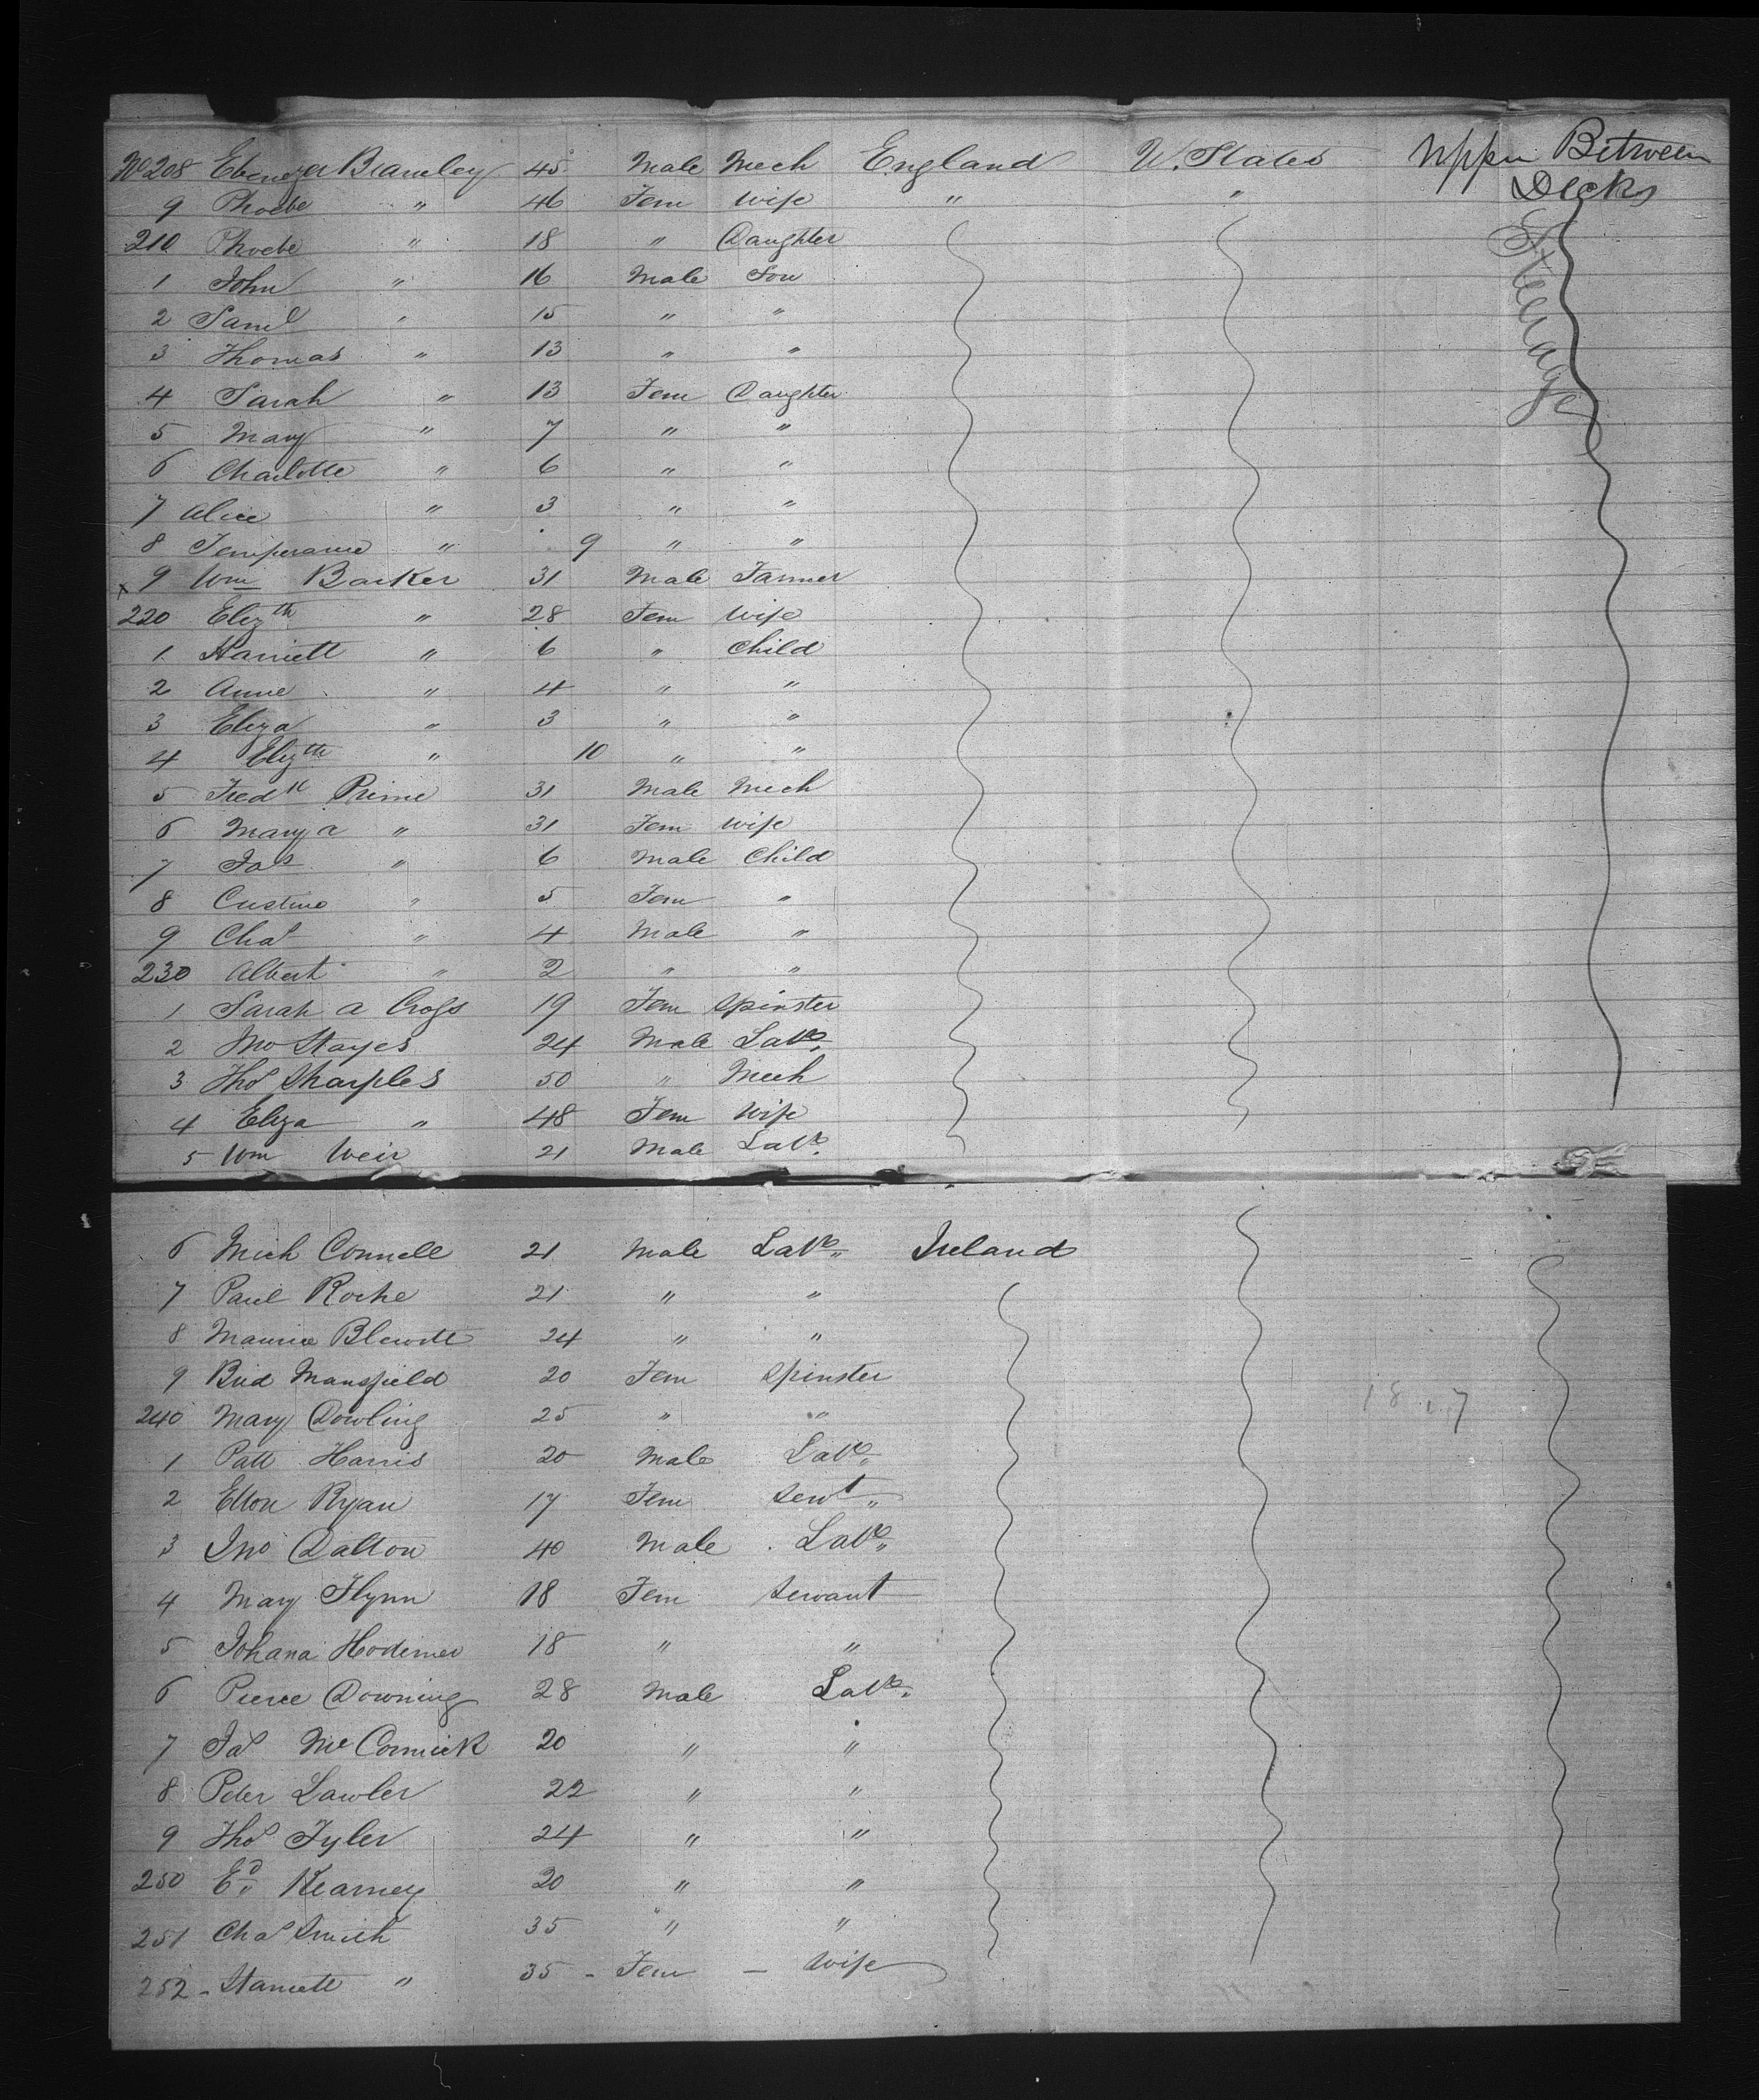 No 208 Ebenezer Bramley 45 Male Mech England U. States Upper Between
Decks
Steerage
9 Phoebe " 46 Fem Wife " "
210 Phoebe " 18 " Daughter
1 John " 16 Male Son
2 Saml " 15 " "
3 Thomas " 13 " "
4 Sarah " 13 Fem Daughter
5 Mary " 7 " "
6 Charlotte " 6 " "
7 Alice " 3 " "
8 Temperance " 9 " "
x 9 Wm Barker 31 Male Farmer
220 Elizth " 28 Fem Wife
1 Harriett " 6 " Child
2 Anne " 4 " "
3 Eliza " 3 " "
4 Elizth " 10 " "
5 Fredk Prime 31 Male Mech
6 Mary a " 31 Fem Wife
7 Jas " 6 Male Child
8 " 5 Fem "
9 Chas " 4 Male "
230 Albert " 2 " "
1 Sarah a Cross 19 Fem Spinster
2 Jno Hayes 24 Male Labr
3 Thos Sharples 50 " Mech
4 Eliza " 48 Fem Wife
5 Wm Weir 21 Male Labr
6 Mich Connell 21 Male Labr Ireland
7 Paul Roche 21 " "
8 Maurice 24 " "
9 Brid Mansfield 20 Fem Spinster
240 Mary Dowling 25 " "
1 Patt Harris 20 Male Labr
2 Ellen Ryan 17 Fem Servt
3 Jno Dalton 40 Male Labr
4 Mary Flynn 18 Fem Servant
5 Johana 18 " "
6 Pierce Downing 28 Male Labr
7 Jas McCormick 20 " "
8 Peter Lawler 22 " "
9 Thos Tyler 24 " "
250 Ed Kearney 20 " "
251 Chas Smith 35 " "
252 - Harriett " 35 - Fem - Wife